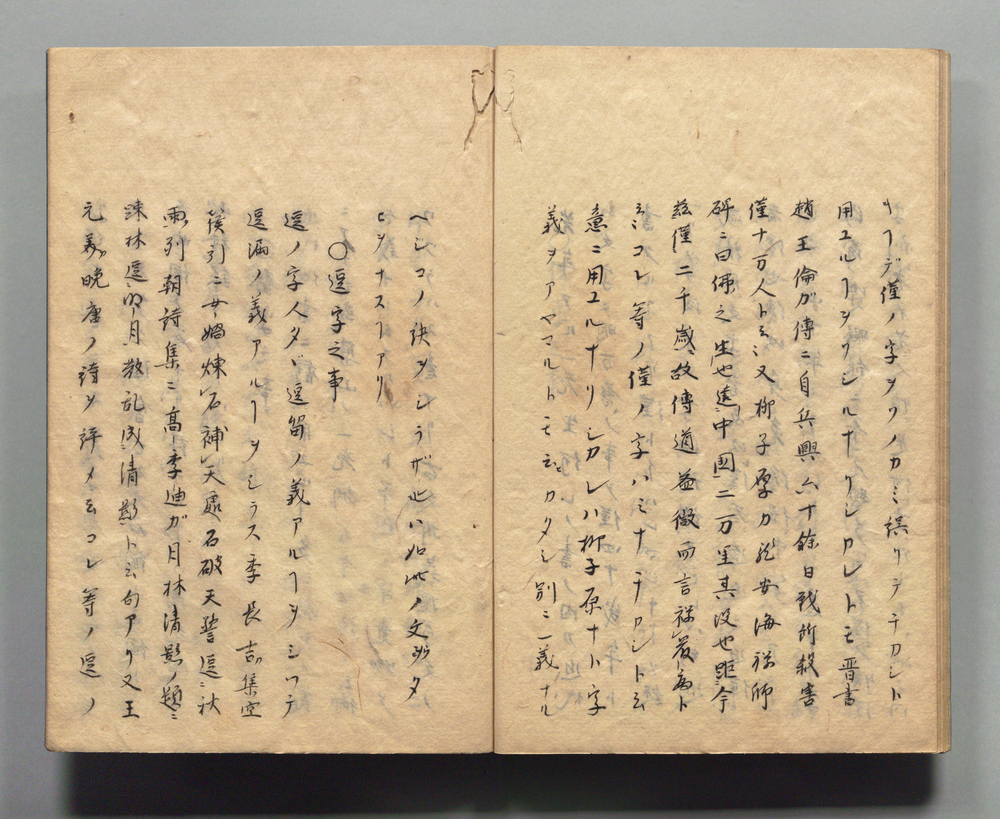 リーデ僅ノ字ヲワノカミ誤リテチカシト
用ユルヿヲワシルナリシカレトモ晋書
趙王倫ガ傳ニ自兵興六十餘日戰所殺害
僅十万人ト云又柳子厚カ龍安海禅師
碑ニ曰佛之生也遠中國二万里其没也距今
茲僅二千歳故傳道益微而言禅最病ト
云コレ等ノ僅ノ字ハミナチカシト云
意ニ用ユルナリシカレハ柳子厚ナト字
義ヲアヤマルトモ云カタシ別ニ一義ナル
ベシコノ訣ヲシラザレハ如此ノ文必タ
ヒヲナスヿアリ
〇逗字之事
逗ノ字人タヾ逗留ノ義アルヿヲシツテ
逗漏ノ義アルヿヲシラス李長吉集空
篌引ニ女媧煉石補天處石破天驚逗秋
雨列朝詩集ニ高季迪ガ月林清影ノ題ニ
疎林逗明月散乱成清影ト云句アリ又王
元美晩唐ノ詩ヲ評メ云コレ等ノ逗ノ